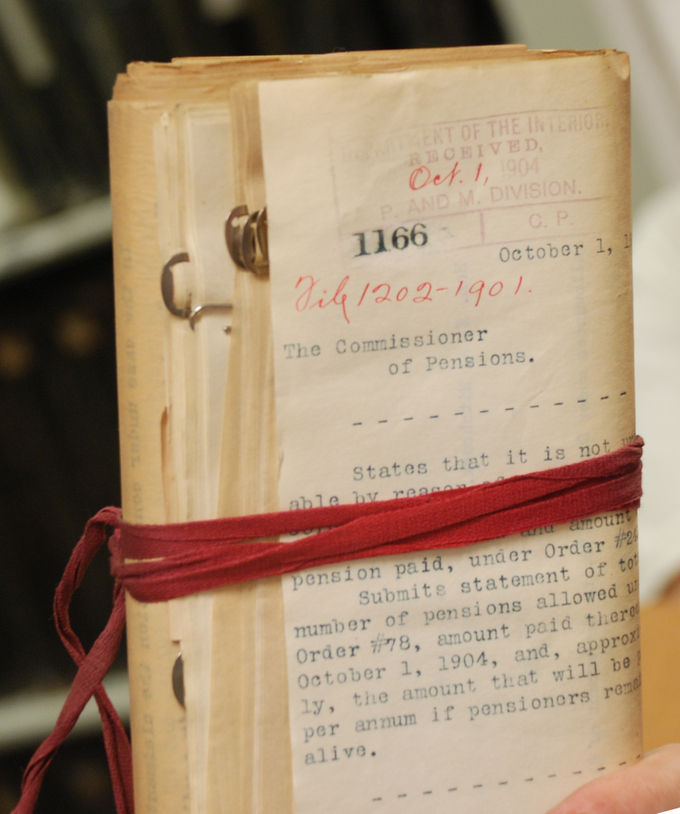 DEPARTMENT OF THE INTERIOR
RECEIVED,
Oct. 1, 1904
P. AND M. DIVISION.
1166 C. P.
October 1, 1
File 1202-1901.
The Commissioner
of Pensions.
- - - - - - - - - - -
States that it is not
able by reason of
and amount
pension paid, under Order #2
Submits statement of tot
number of pensions allowed un
Order #78, amount paid there
October 1, 1904, and, approxi
ly, the amount that will be
per annum if pensioners remai
alive.
- - - - - - - - - - -